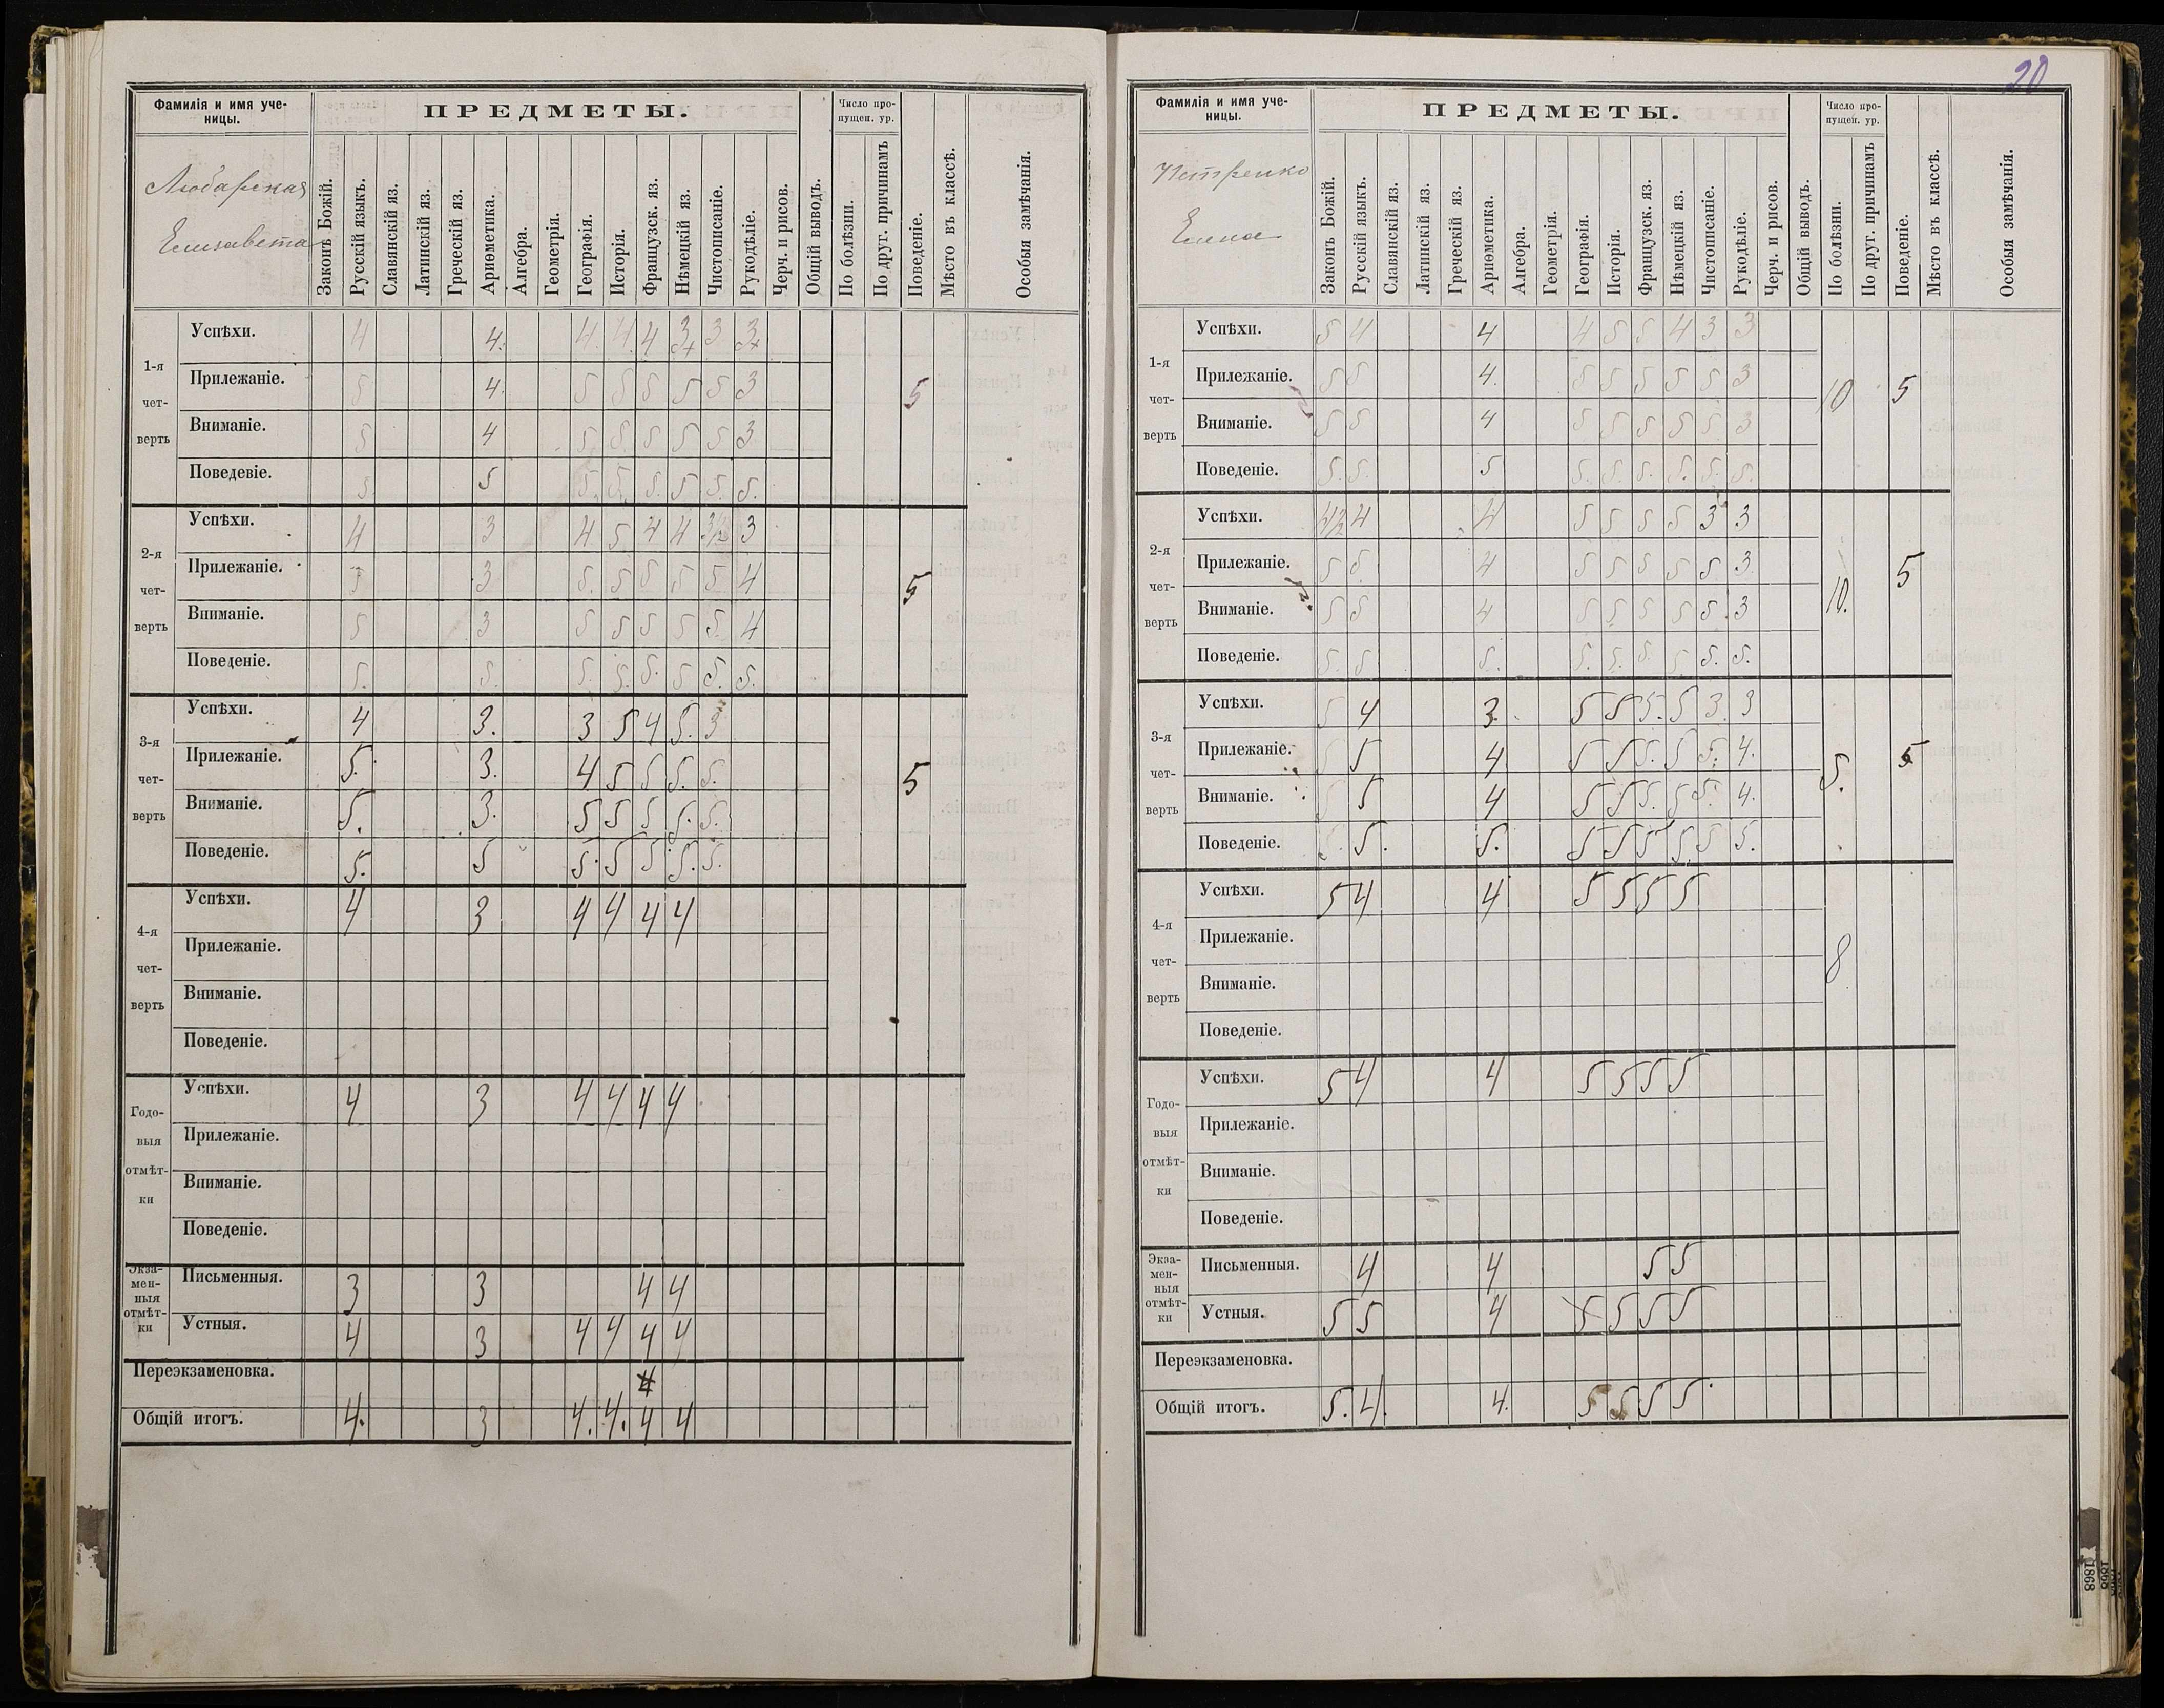 Фамилія и имя уче-
ницы.
ПРЕДМЕТЫ.
Число про-
пущен. ур.
Любарская
Елизавета
Законъ Божій.
Русскій языкъ.
Славянскій яз.
Латинскій яз.
Греческій яз.
Ариөметика.
Алгебра.
Геометрія.
Географія.
Исторія.
Французск. яз.
Нѣмецкій яз.
Чистописаніе.
Рукодѣліе.
Черч. и рисов.
Общій выводъ.
По болѣзни.
По друг. причинамъ
Поведеніе.
Мѣсто въ классѣ.
Особыя замѣчанія.
1-я
чет-
верть
Успѣхи. 4 4. 4. 4. 4 3+ 3 3+
Прилежаніе. 5 4. 5 5 5 5 5 3 5
Вниманіе. 5 4 5. 5. 5 5 5 3
Поведевіе. 5. 5 5. 5. 5. 5 5. 5.
2-я
чет-
верть
Успѣхи. 4 3 4 5 4 4 3½ 3
Прилежаніе. 5 3 5. 5 5 5 5. 4 5
Вниманіе. 5 3 5 5 5 5 5. 4
Поведеніе. 5. 5. 5. 5. 5. 5 5. 5.
3-я
чет-
верть
Успѣхи. 4 3. 3 5 4 5. 3
Прилежаніе. 5. 3. 4 5 5 5. 5. 5
Вниманіе. 5. 3. 5 5 5 5. 5.
Поведеніе. 5. 5 5. 5 5 5. 5.
4-я
чет-
верть
Успѣхи. 4 3 4 4 4 4
Прилежаніе.
Вниманіе.
Поведеніе.
Годо-
выя
отмѣт-
ки
Успѣхи. 4 3 4 4 4 4
Прилежаніе.
Вниманіе.
Поведеніе.
Экза-
мен-
ныя
отмѣт-
ки
Письменныя. 3 3 4 4
Устныя. 4 3 4 4 4 4
Переэкзаменовка.
Общій итогъ. 4. 3 4. 4. 4 4
20
Фамилія и имя уче-
ницы.
ПРЕДМЕТЫ.
Число про-
пущен. ур.
Петренко
Елена
Законъ Божій.
Русскій языкъ.
Славянскій яз.
Латинскій яз.
Греческій яз.
Ариөметика.
Алгебра.
Геометрія.
Географія.
Исторія.
Французск. яз.
Нѣмецкій яз.
Чистописаніе.
Рукодѣліе.
Черч. и рисов.
Общій выводъ.
По болѣзни.
По друг. причинамъ
Поведеніе.
Мѣсто въ классѣ.
Особыя замѣчанія.
1-я
чет-
верть
Успѣхи. 5 4 4 4 5 5 4 3 3
Прилежаніе. 5 5 4. 5 5 5 5 5 3 10 5
Вниманіе. 5 5 4 5 5 5 5 5 3
Поведеніе. 5. 5. 5 5. 5. 5. 5. 5. 5.
2-я
чет-
верть
Успѣхи. 4½ 4 4 5 5 5 5 3 3
Прилежаніе. 5 5. 4 5 5 5 5 5 3 10. 5
Вниманіе. 5 5 4 5 5 5 5 5. 3
Поведеніе. 5. 5. 5. 5. 5. 5. 5 5. 5.
3-я
чет-
верть
Успѣхи. 5 4 3. 5 5 5. 5 3. 3
Прилежаніе. 5 5 4 5 5 5. 5 5. 4. 5. 5
Вниманіе. 5 5 4 5 5 5. 5 5. 4.
Поведеніе. 5. 5. 5. 5 5 5 5. 5 5.
4-я
чет-
верть
Успѣхи. 5 4 4 5 5 5 5
Прилежаніе. 8
Вниманіе.
Поведеніе.
Годо-
выя
отмѣт-
ки
Успѣхи. 5 4 4 5 5 5 5
Прилежаніе.
Вниманіе.
Поведеніе.
Экза-
мен-
ныя
отмѣт-
ки
Письменныя. 4 4 5 5
Устныя. 5 5 4 5 5 5 5
Переэкзаменовка.
Общій итогъ. 5. 4. 4. 5 5 5 5.
1868
1868